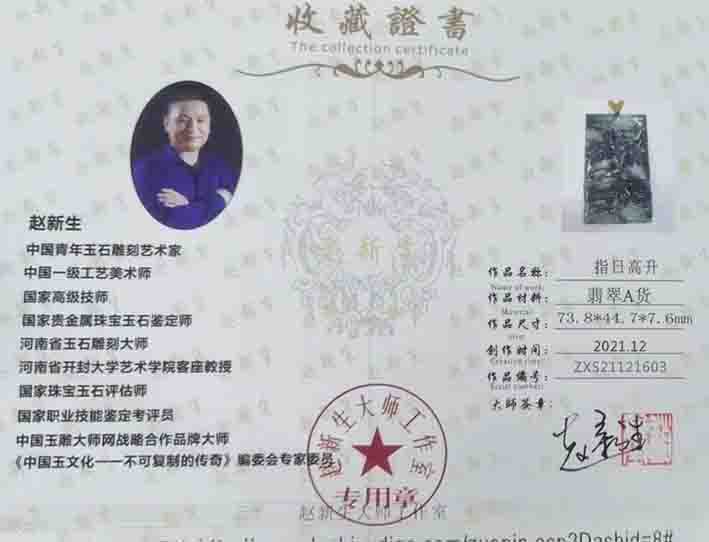 收藏證書
The collection certificate
赵新生
中国青年玉石雕刻艺术家
中国一级工艺美术师
国家高级技师
国家贵金属珠宝玉石鉴定师
河南省玉石雕刻大师
河南省开封大学艺术学院客座教授
国家珠宝玉石评估师
国家职业技能鉴定考评员
中国玉雕大师网战略合作品牌大师
《中国玉文化——不可复制的传奇》编委会专家委员
作品名称: 指日高升
Name of work:
作品材料: 翡翠A货
Material:
作品尺寸: 73.8*44.7*7.6mm
size:
创作时间: 2021.12
作品编号: ZXS21121603
大师签章:
赵新生
赵新生大师工作室
专用章
赵新生大师工作室